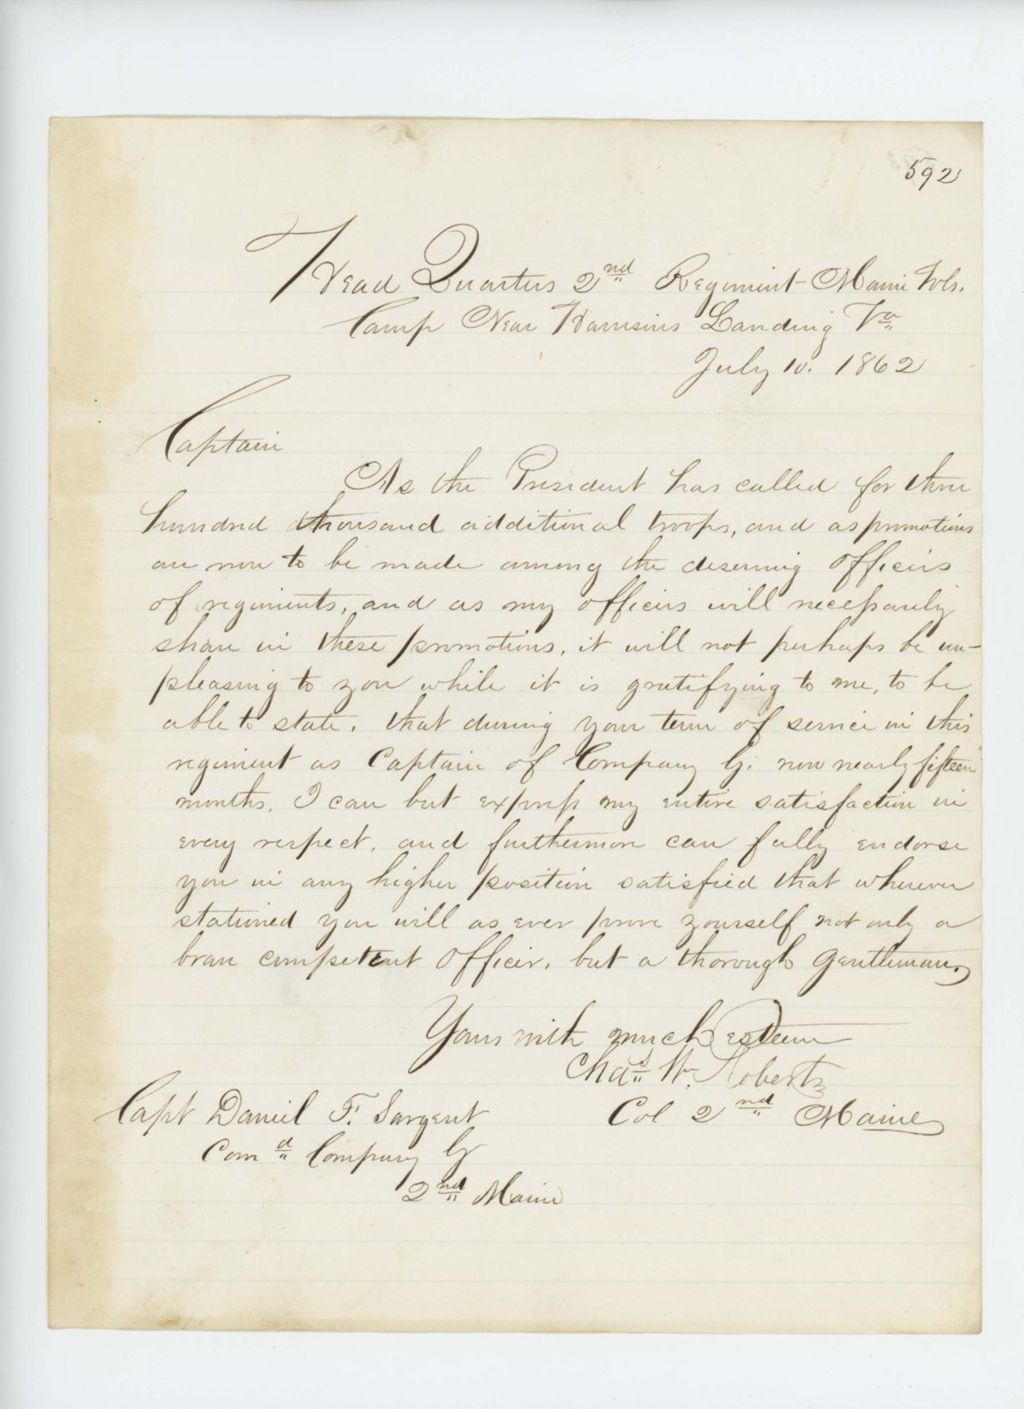 592
Head Quarters 2nd Regiment Maine Vols.
Camp Near Harrisins Landing Va
July 10. 1862
Captain
As the President has called for three
hundred thousand additional troops, and as promotions
are now to be made among the deserving officers
of regiments, and as my officers will necessarily
share in these promotions, it will not perhaps be un-
pleasing to you while it is gratifying to me, to be
able to state, that during your term of service in this
regiment as Captain of Company G. now nearly fifteen
months, I can but express my entire satisfaction in
every respect, and furthermore can fully endorse
you in any higher position satisfied that wherever
stationed you will as ever prove yourself not only a
brave competent officer, but a thorough gentleman,
Yours with much esteem
Chas W. Roberts
Col 2nd Maine
Capt Daniel F. Sargent
Comd Company G
2nd Maine